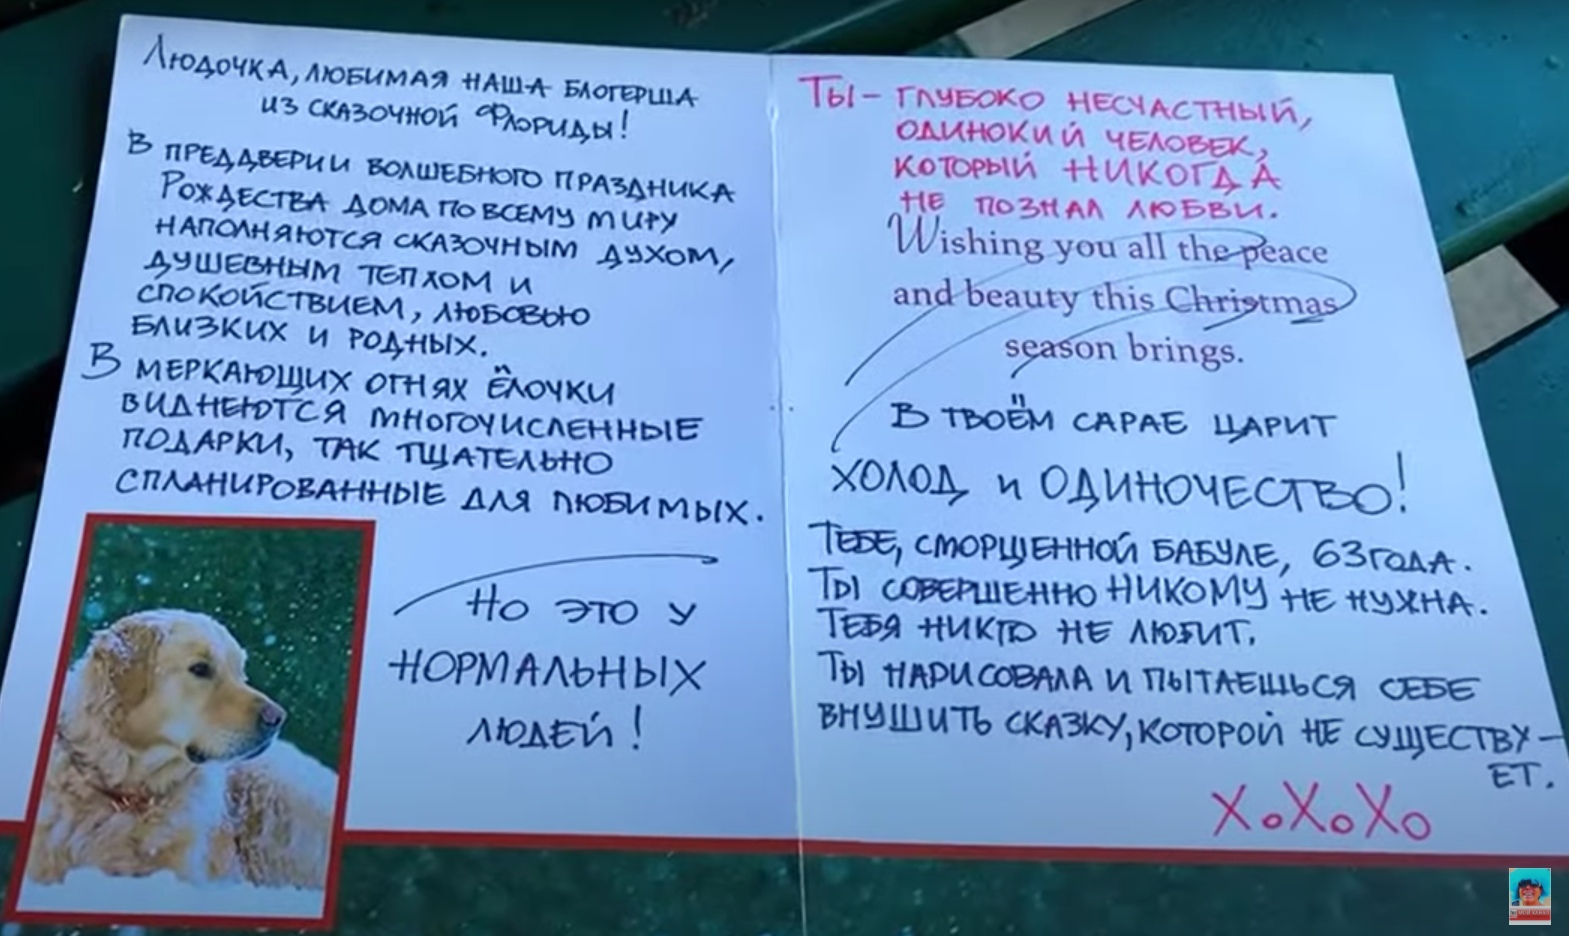 Людочка, любимая наша блогерша
из сказочной Флориды!
В преддверии волшебного праздника
Рождества дома по всему миру
наполняются сказочным духом,
душевным теплом и
спокойствием, любовью
близких и родных.
В меркающих огнях ёлочки
виднеются многочисленные
подарки, так тщательно
спланированные для любимых.
Но это у
нормальных
людей!
Ты - глубоко несчастный,
одинокий человек,
который никогда
не познал любви.
Wishing you all the peace
and beauty this Christmas
season brings.
В твоём сарае царит
холод и одиночество!
Тебе, сморщенной бабуле, 63 года.
Ты совершенно никому не нужна.
Тебя никто не любит.
Ты нарисовала и пытаешься себе
внушить сказку, которой не существу-
ет.
ХоХоХо